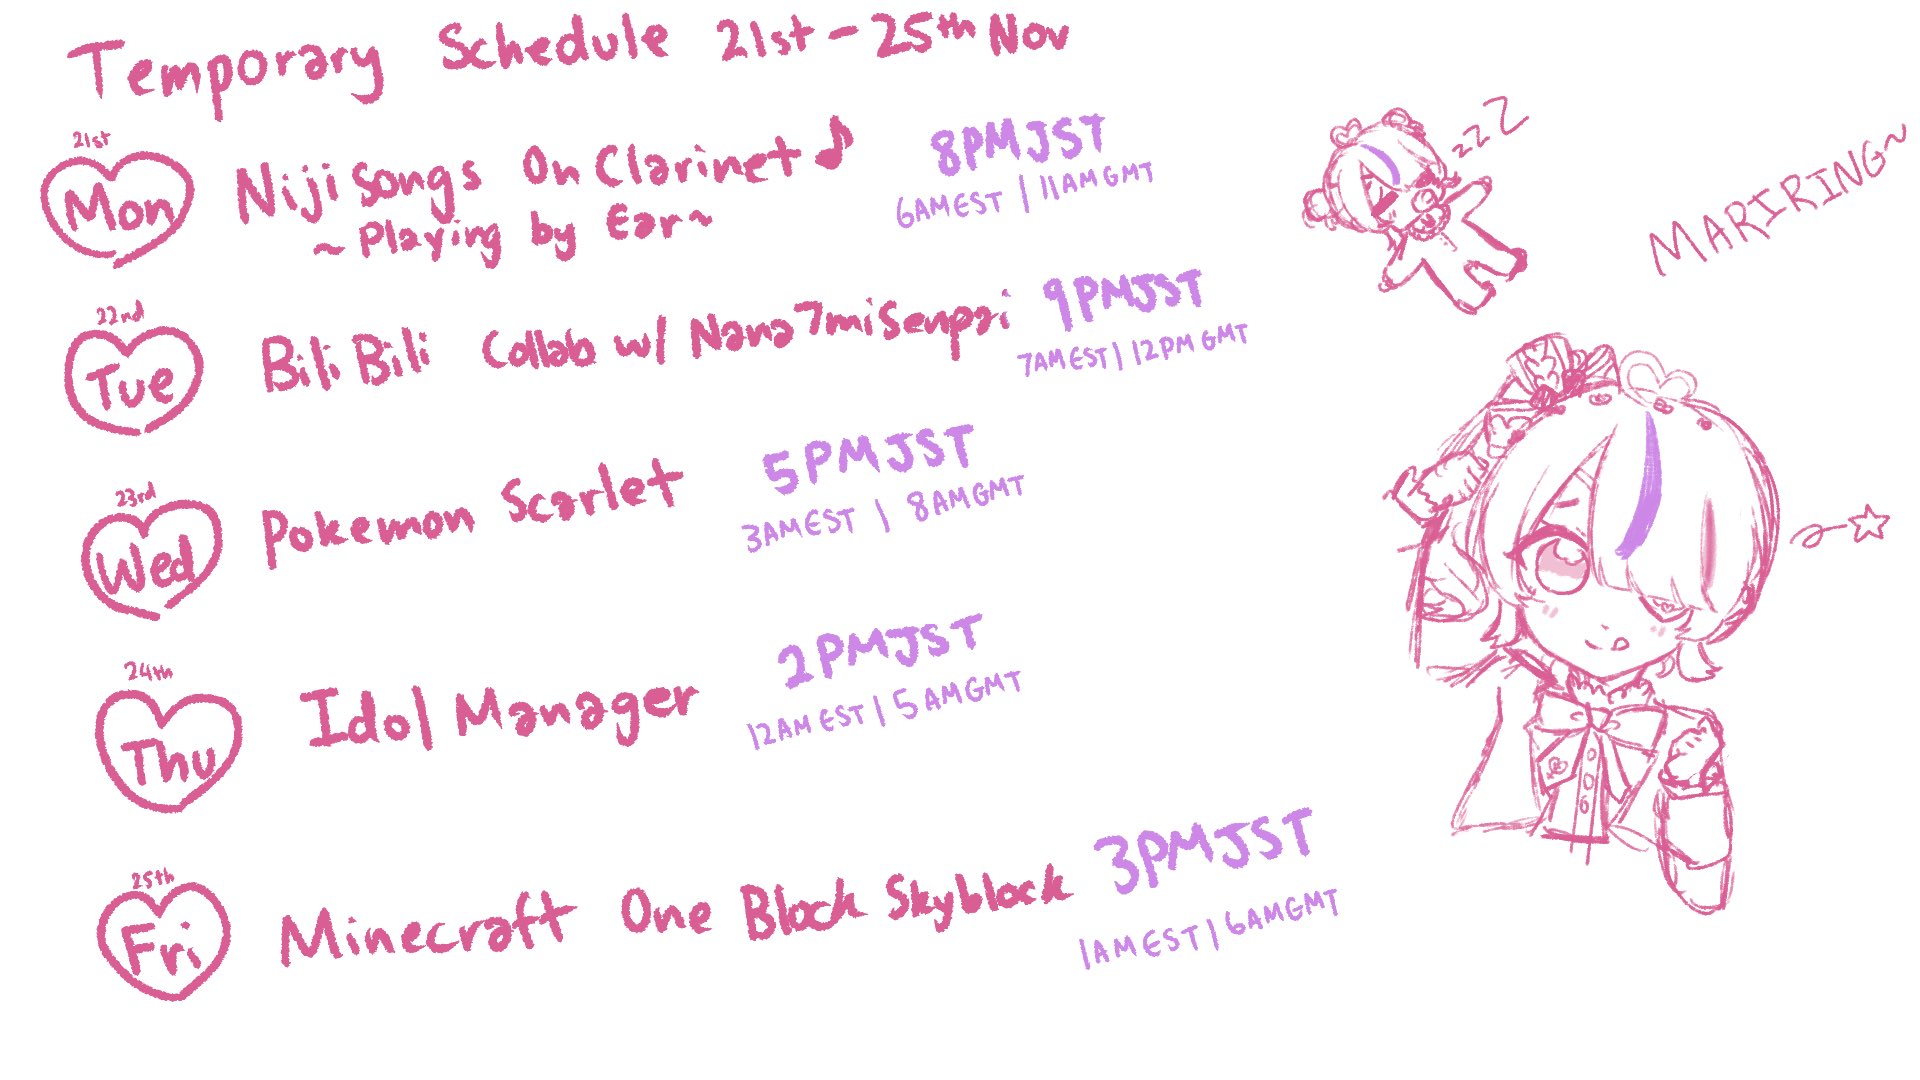 Temporary Schedule 21st - 25th Nov
21st
Mon
Niji Songs On Clarinet ♪
~ Playing by Ear ~
8PM JST
6AM EST | 11AM GMT
zzZ
MARIRING~
22nd
Tue
BiliBili Collab w/ Nana7mi Senpai
9PM JST
7AM EST | 12PM GMT
23rd
Wed
Pokemon Scarlet
5PM JST
3AM EST | 8AM GMT
24th
Thu
Idol Manager
2PM JST
12AM EST | 5AM GMT
25th
Fri
Minecraft One Block Skyblock
3PM JST
1AM EST | 6AM GMT